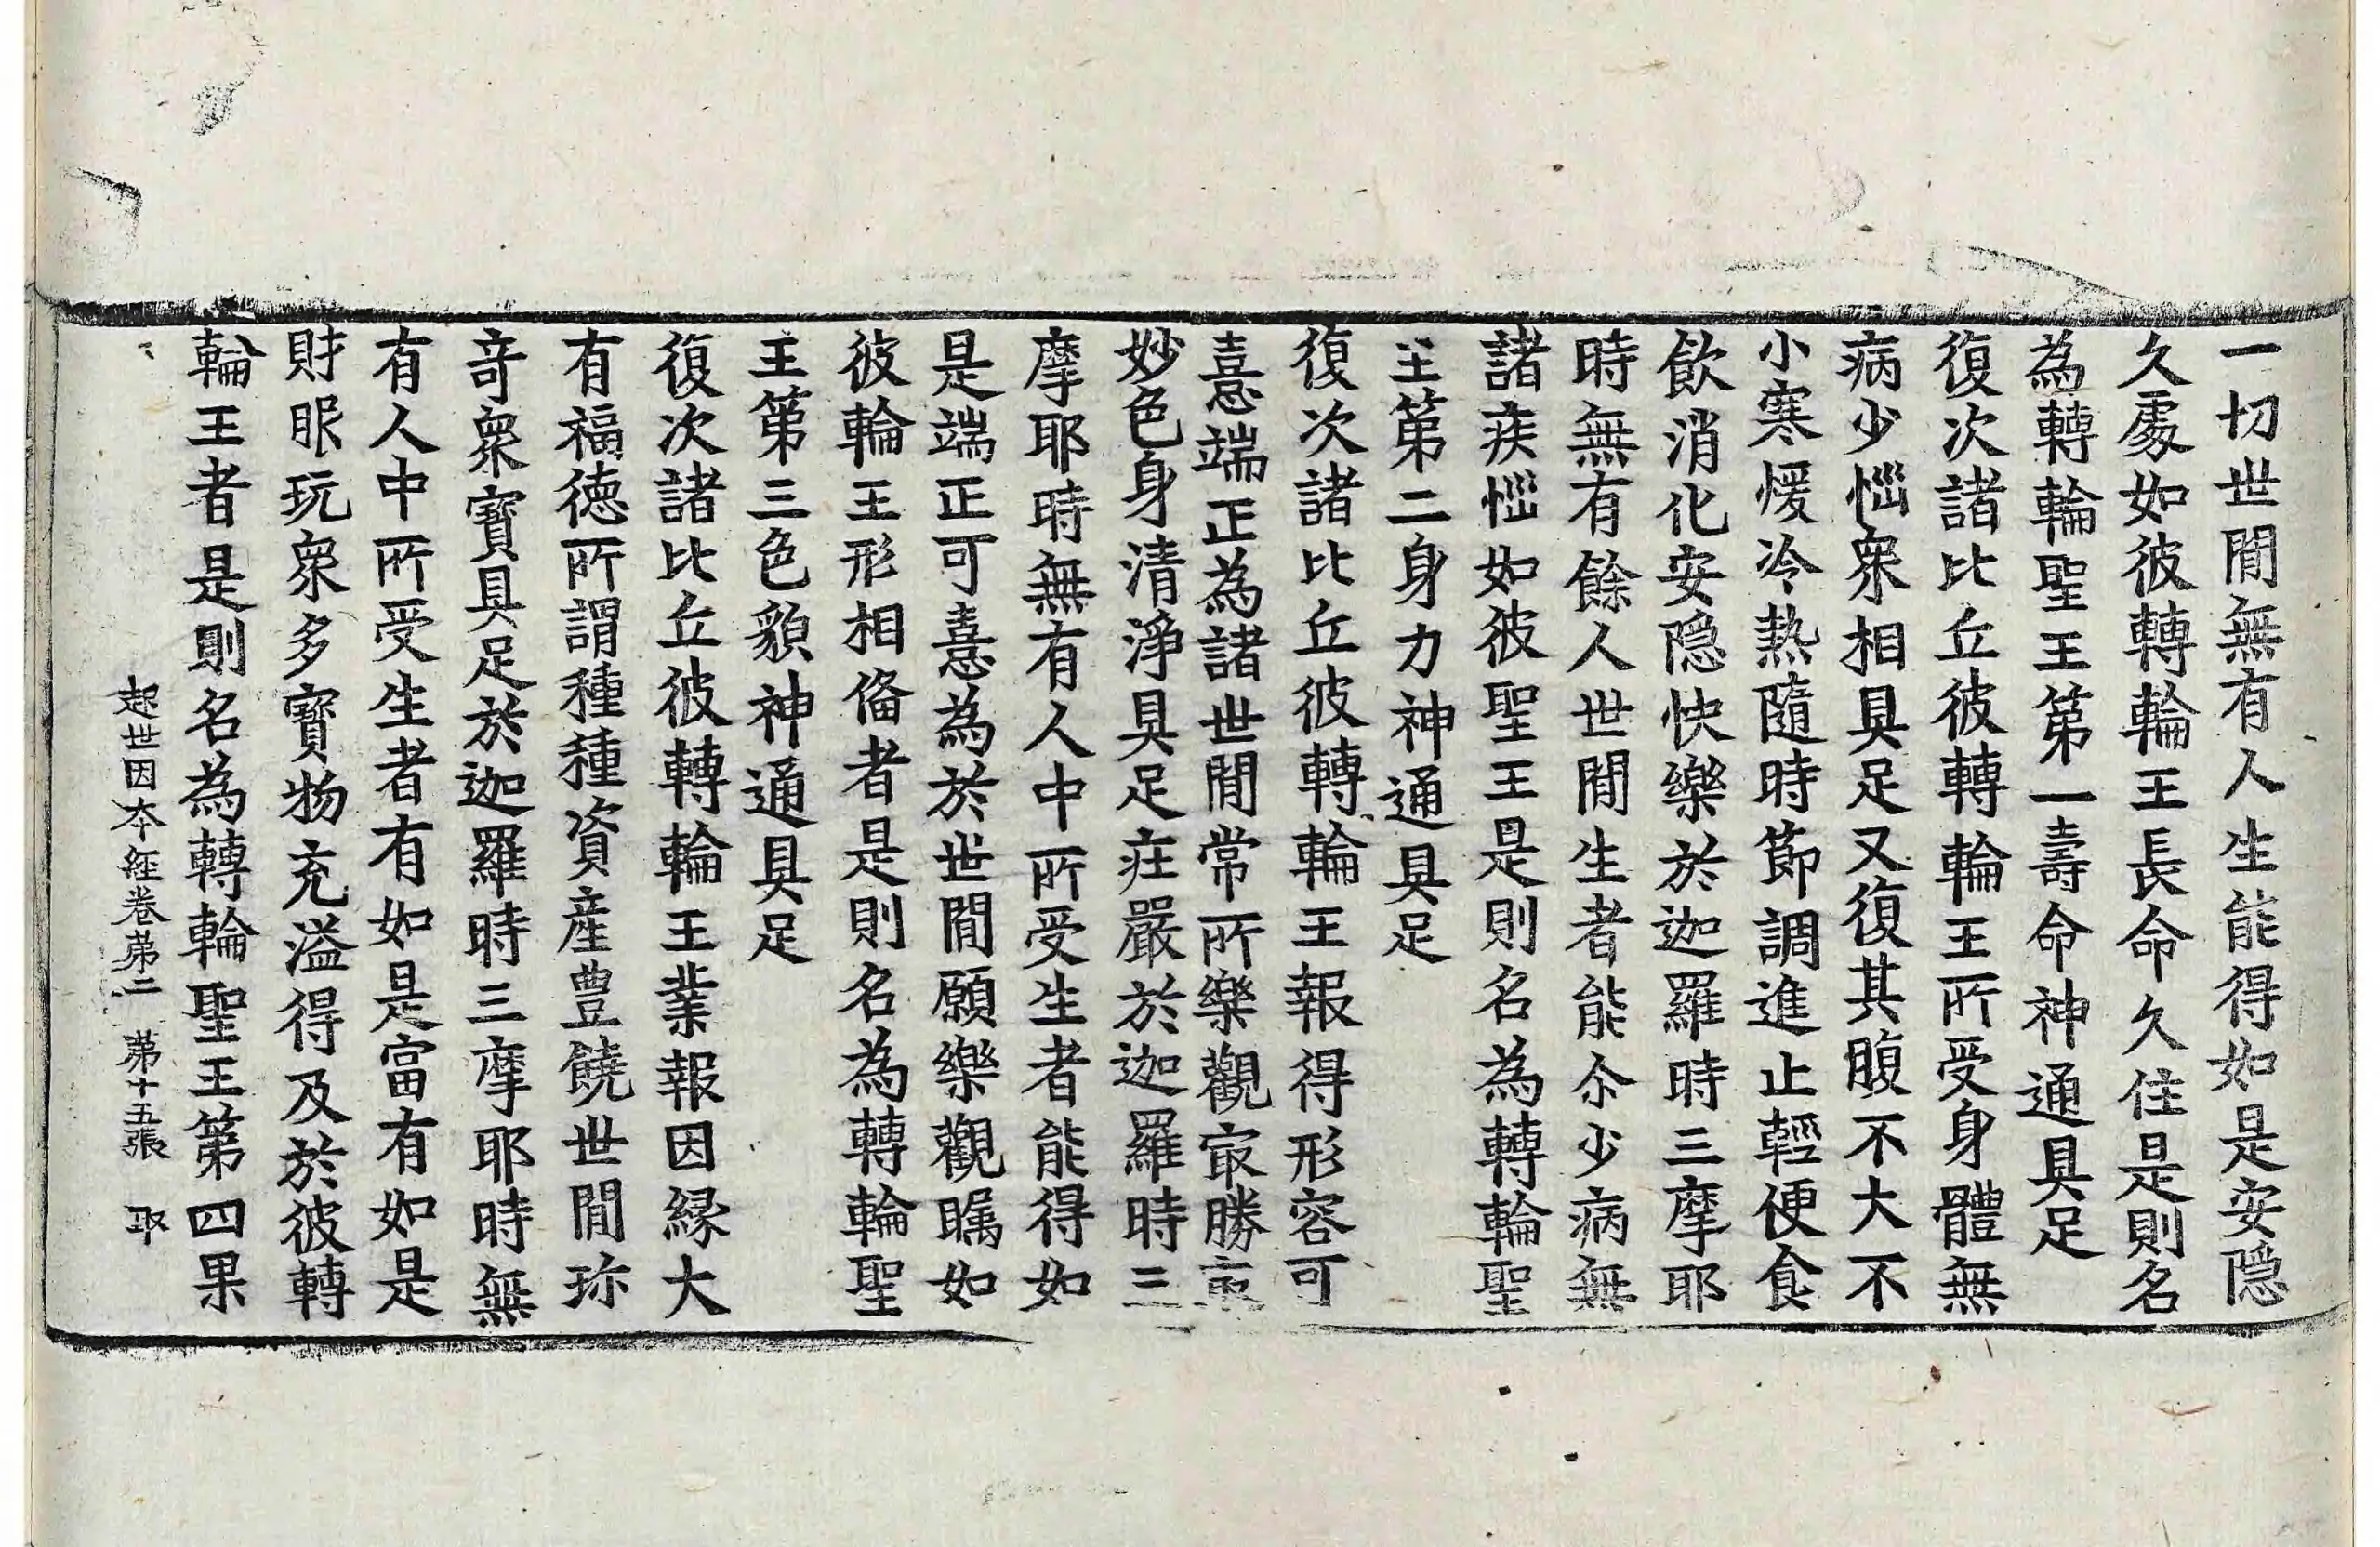 一切世閒無有人生能得如是安隱
久處如彼轉輪王長命久住是則名
為轉輪聖王第一壽命神通具足
復次諸比丘彼轉輪王所受身體無
病少惱衆相具足又復其腹不大不
小寒煖冷熱隨時節調進止輕便食
飲消化安隱快樂於迦羅時三摩耶
時無有餘人世閒生者能尒少病無
諸疾惱如彼聖王是則名為轉輪聖
王第二身力神通具足
復次諸比丘彼轉輪王報得形容可
憙端正為諸世閒常所樂觀㝡勝
妙色身清淨具足庄嚴於迦羅時三
摩耶時無有人中所受生者能得如
是端正可憙為於世閒願樂觀矚如
彼輪王形相俻者是則名為轉輪聖
王第三色貌神通具足
復次諸比丘彼轉輪王業報因縁大
有福德所謂種種資產豊饒世閒珎
竒衆寶具足於迦羅時三摩耶時無
有人中所受生者有如是富有如是
財眼玩衆多寶物充溢得及於彼轉
輪王者是則名為轉輪聖王第四果
起世因本經卷第二 第十五張 取